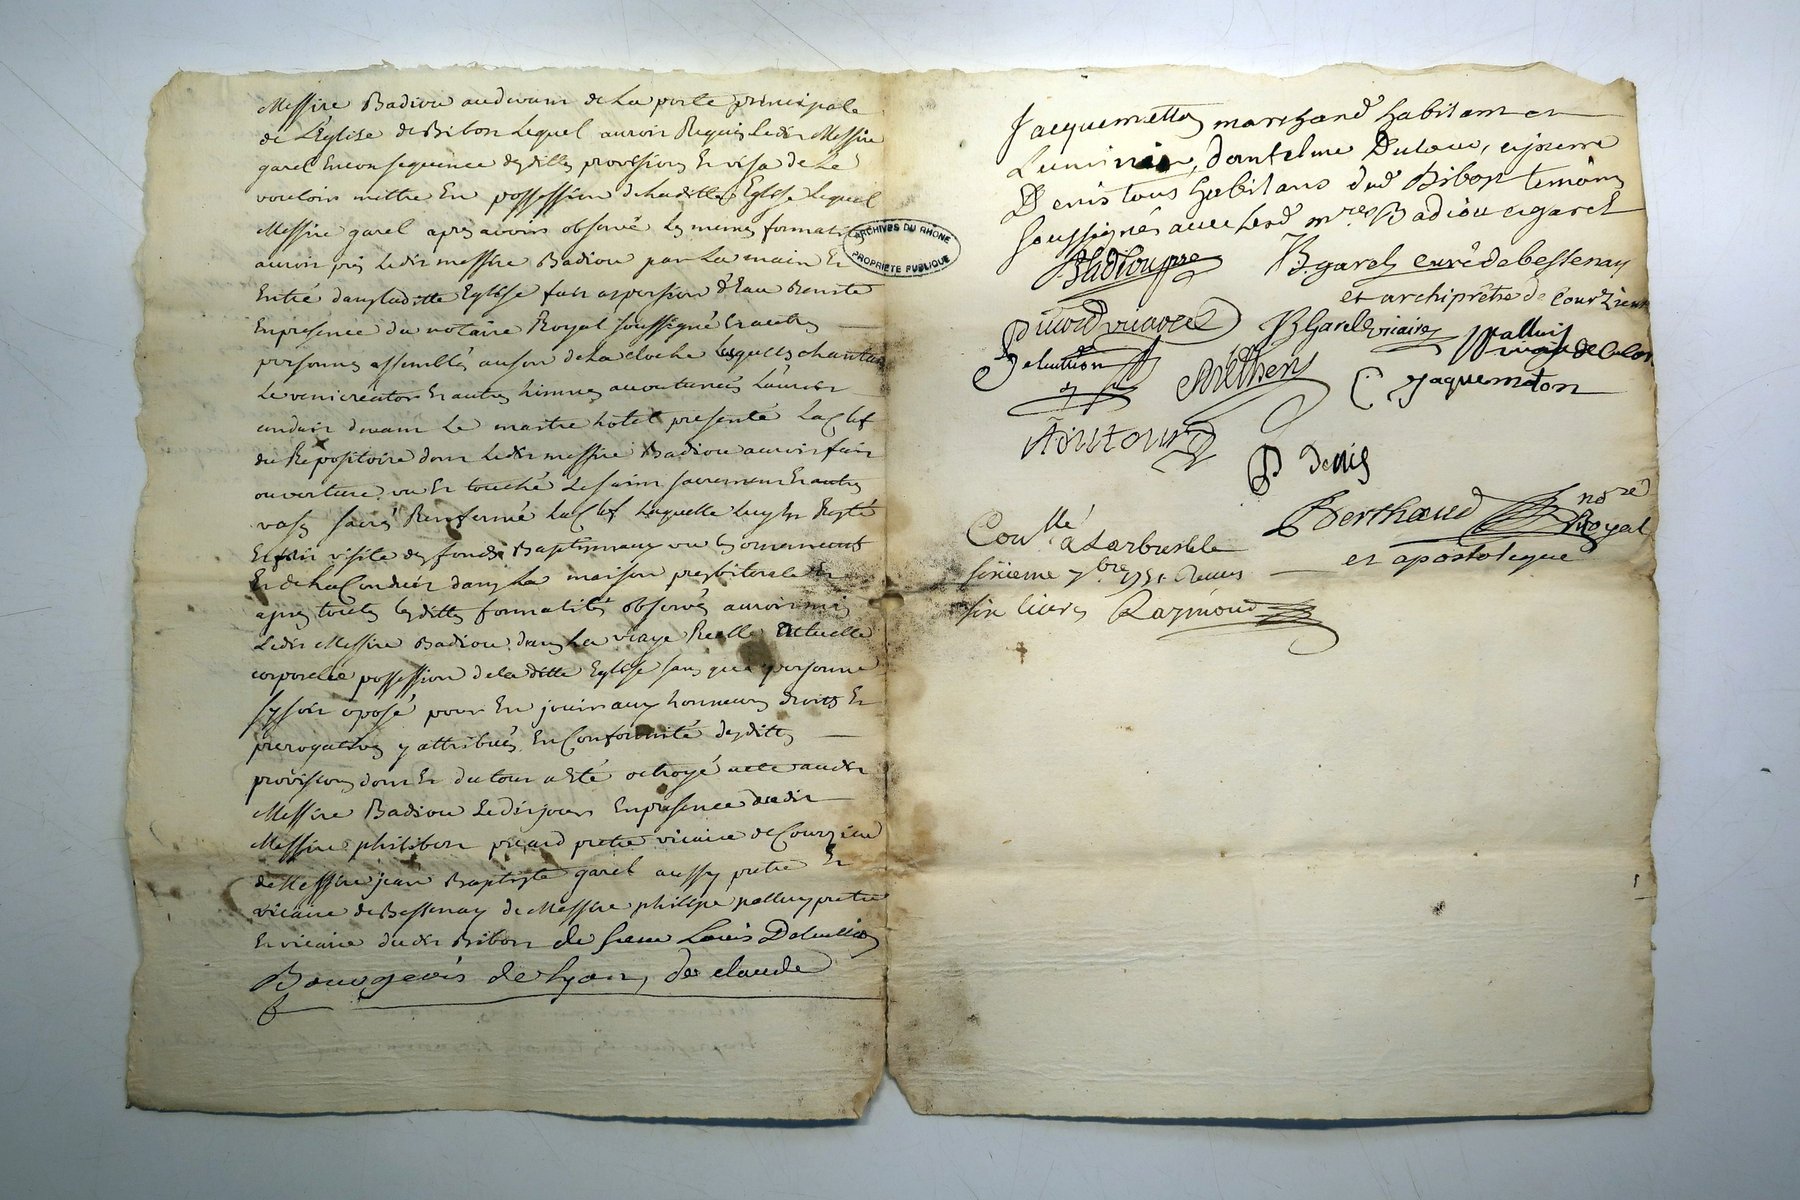 Messire Badiou audevant de La porte principale
de L'Eglise de Bibos Lequel auroit Requis Ledit Messire
garel En consequence desdittes provisions Et visa de Le
vouloir mettre En possession de laditte Eglise Lequel
Messire garel apres avoir observé les memes formalit
auroit pris Ledit messire Badiou par La main Et
Entré dans laditte Eglise fait aspersion d'Eau Benite
En presence du notaire Royal soussigné Et autres
personnes assemblés au son de la cloche lesquels chantan
Le veni creator Et autres himnes accoutumés L'auroit
conduit devant Le maitre hotel presenté La Clef
du Repositoire dont Ledit messire Badiou auroit fait
ouverture vu Et touché Le saint sacrement Et autres
vases sacrés Renfermé La Clef Laquelle luy Resté
Et fait visite des fonds Baptismaux vu les ornements
Et de La Conduit dans La maison presbiterale Et
apres toutes lesdittes formalités observés auroit mis
Ledit Messire Badiou dans La vraye Reelle Actuelle
corporelle possession de la ditte Eglise sans que personne
s'y soit oposé pour En jouir aux honneurs droits Et
prerogatives y attribués En Conformité desdittes
provisions dont Et du tout a Eté octroyé acte audit
Messire Badiou Ledit jour En presence dudit
Messire philibert picard pretre vicaire de Courzieu
de Messire jean Baptiste garel aussy pretre Et
vicaire de Bessenay de Messire philipe palluy pretre
Et vicaire dudit Bibos de sieur Louis
Bourgeois de Lyon, de claude
ARCHIVES DU RHONE
PROPRIETE PUBLIQUE
Jacquemetton marchand habitant en
d'antelme Dutour, et pierre
Denis tous habitans dud Bibost temoins
soussignés avec lesd mres Badiou et garel
Badiou pre
B. garel curé de bessenay
et archiprêtre de Courzieu
picard vicaire
B Garel vicaire
palluis
Jaquemeton
A Dutour
P Denis
Berthaud nore
Royal
et apostolique
Conllé à Larbresle
sixieme 7bre 1751 Recus
six livres Raymond